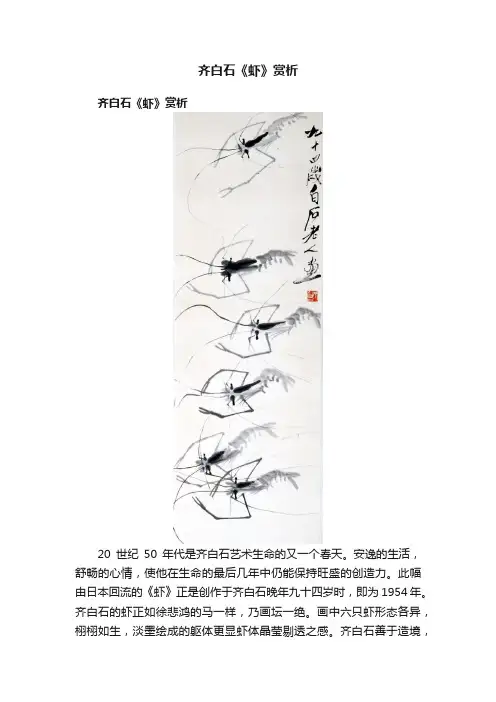 齐白石《虾》赏析
齐白石《虾》赏析
九十四岁白石老人画
20 世纪 50 年代是齐白石艺术生命的又一个春天。安逸的生活，
舒畅的心情，使他在生命的最后几年中仍能保持旺盛的创造力。此幅
由日本回流的《虾》正是创作于齐白石晚年九十四岁时，即为1954年。
齐白石的虾正如徐悲鸿的马一样，乃画坛一绝。画中六只虾形态各异，
栩栩如生，淡墨绘成的躯体更显虾体晶莹剔透之感。齐白石善于造境，